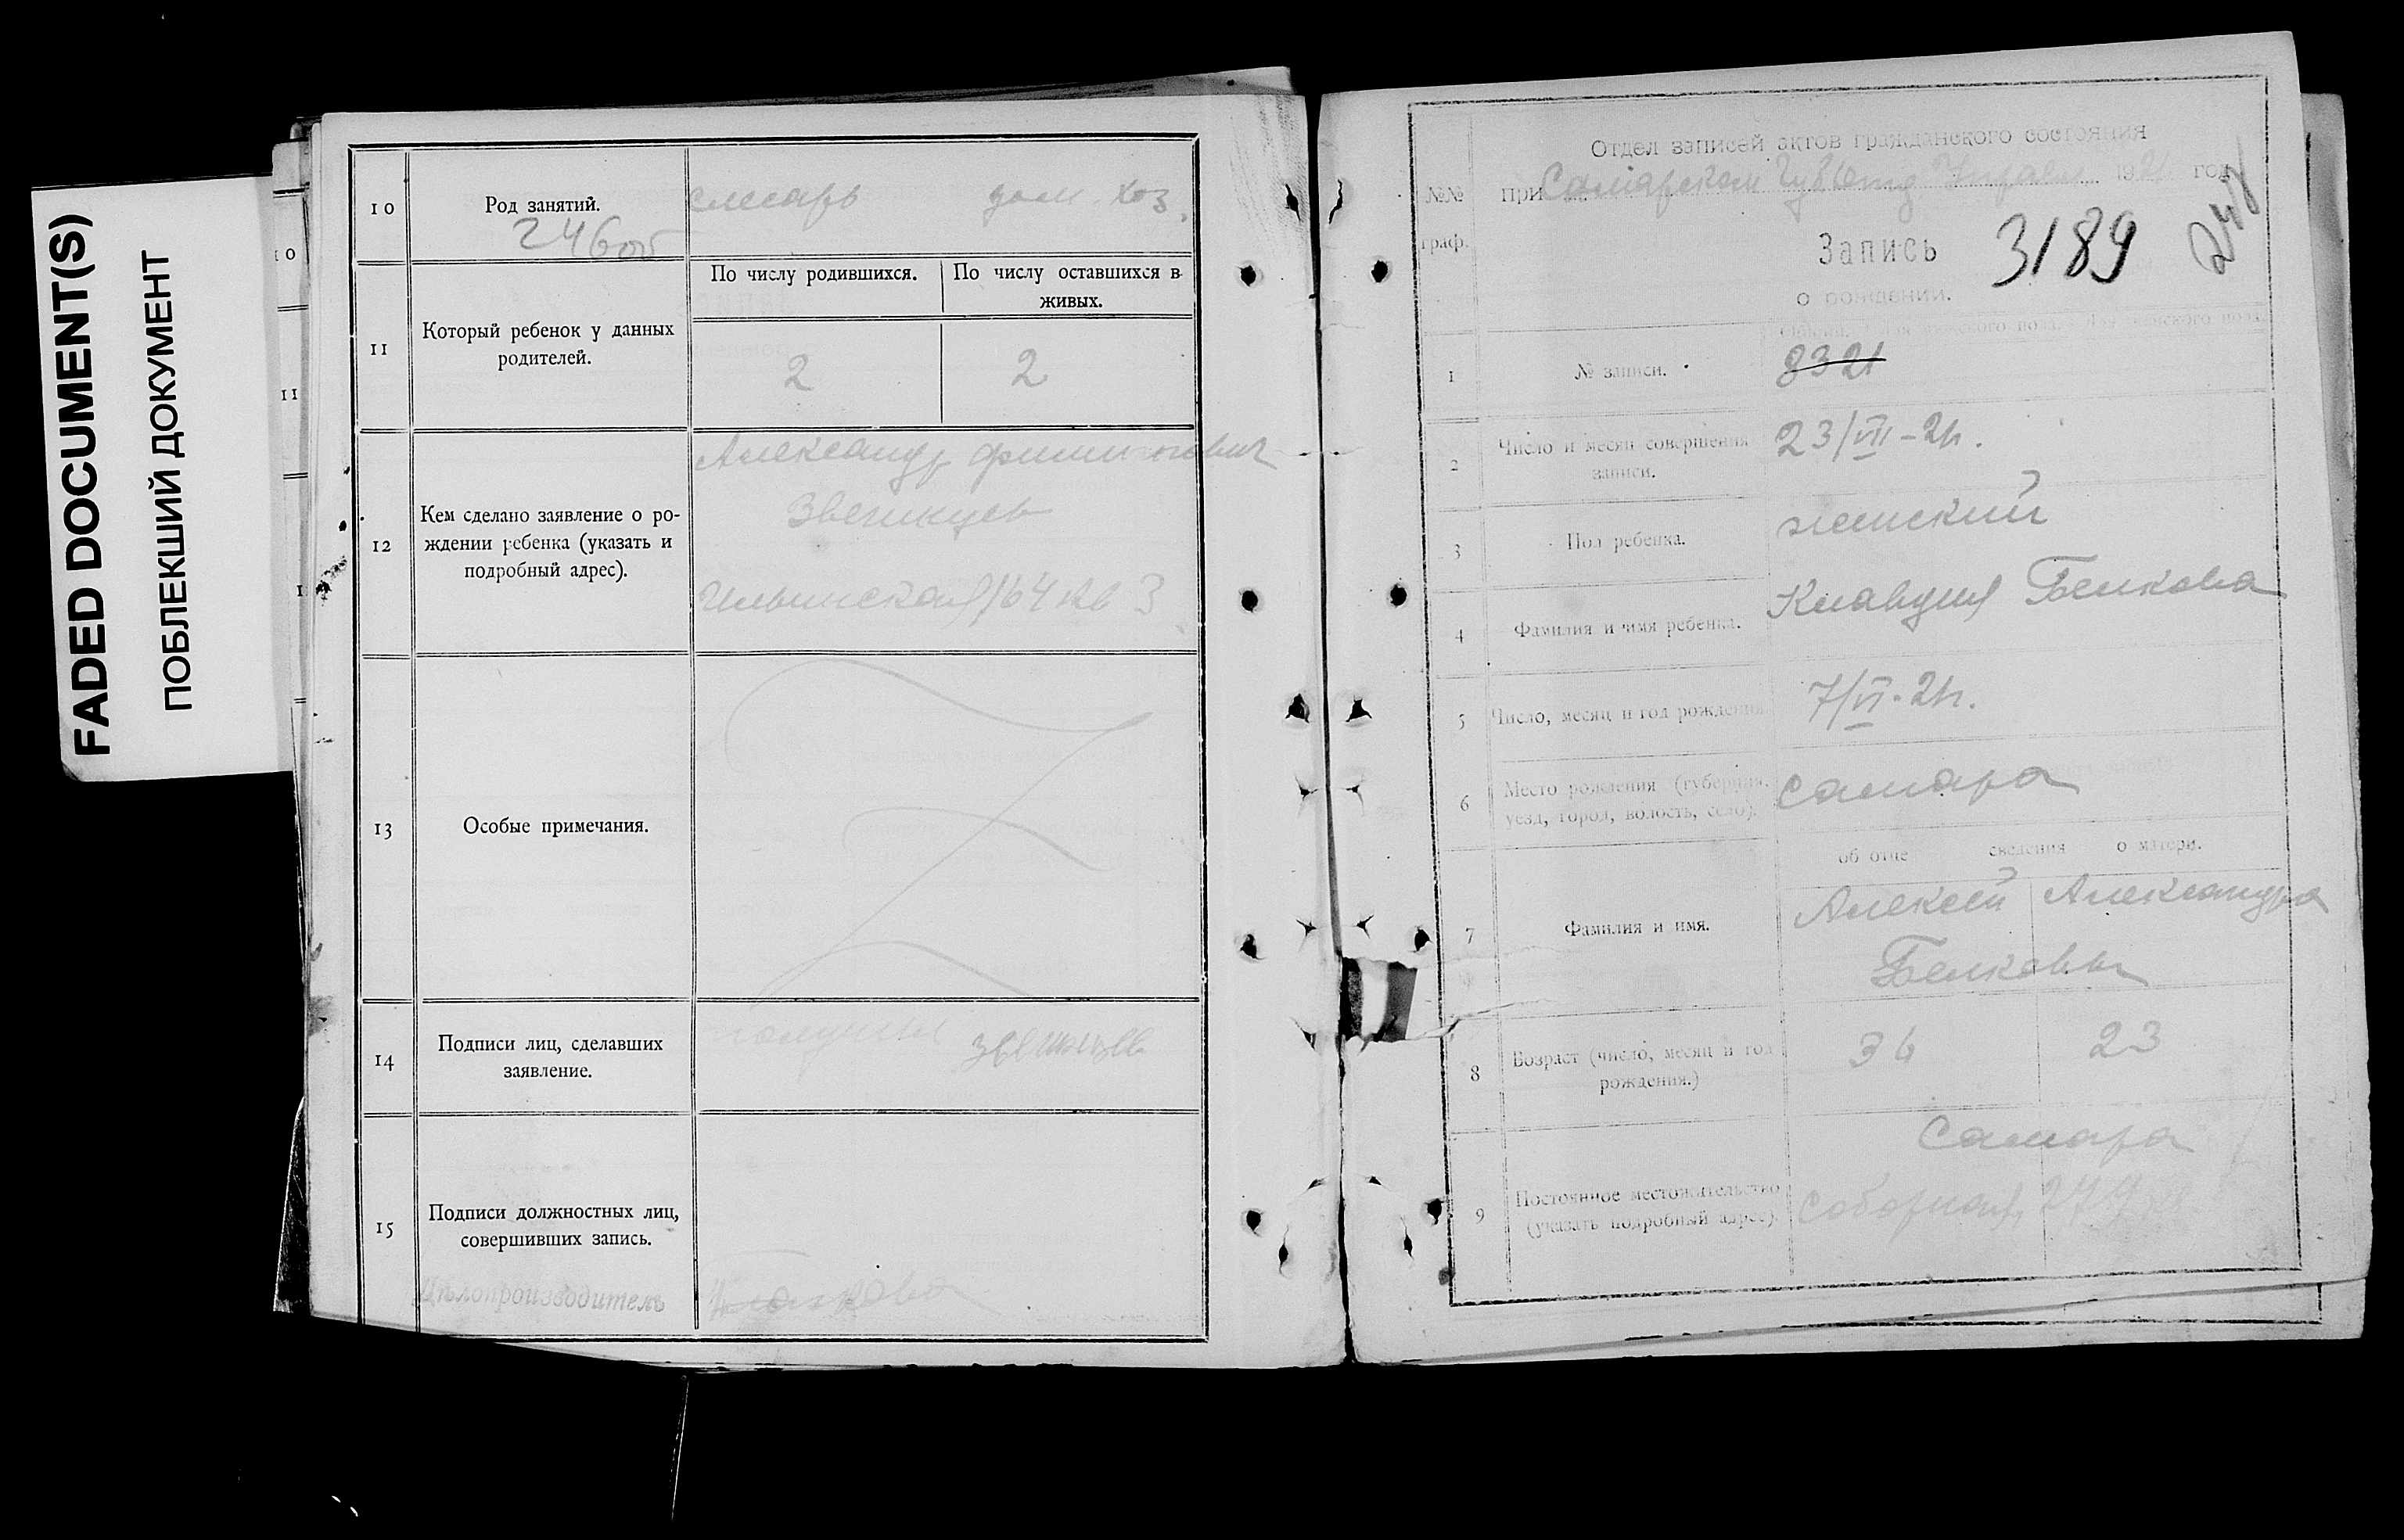 FADED DOCUMENT(S)
ПОБЛЕКШИЙ ДОКУМЕНТ
10
Род занятий.
слесарь дом. хоз.
246об
11
Который ребенок у данных
родителей.
По числу родившихся.
По числу оставшихся в
живых.
2
2
12
Кем сделано заявление о ро-
ждении ребенка (указать и
подробный адрес).
Александр
Звегинцев
Ильинская 164 кв 3
13
Особые примечания.
14
Подписи лиц, сделавших
заявление.
Звегинцев
15
Подписи должностных лиц,
совершивших запись.
Дѣлопроизводитель
Отдел записей актов гражданского состояния
№№
граф.
при Самарском 1921 год
Запись
3189
о рождении.
1
№ записи.
8321
2
Число и месяц совершения
записи.
23/VII-21г.
3
Пол ребенка.
женский
4
Фамилия и имя ребенка.
Клавдия Белкова
5
Число, месяц и год рождения
7/VI-21г.
6
Место рождения (губерния,
уезд, город, волость, село).
Самара
об отце сведения о матери.
7
Фамилия и имя.
Алексей Александра
Белковы
8
Возраст (число, месяц и год
рождения.)
36
23
9
Постоянное местожительство
(указать подробный адрес).
Самара
Соборная